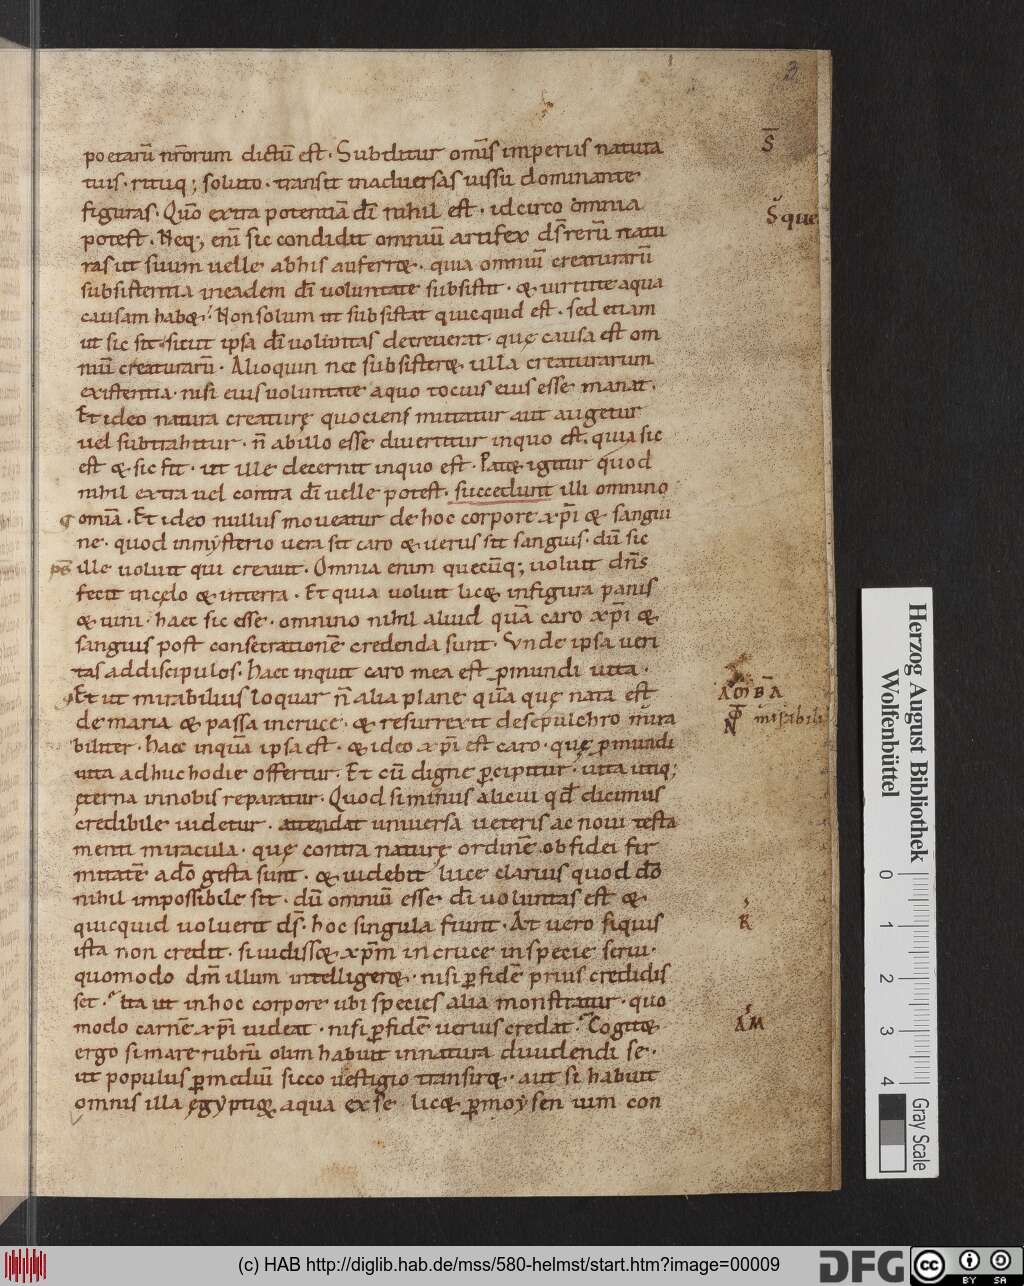 3
poetarũ nr̃orum dictũ est. Subditur om̃is imperiis natura
tuis. rituq; soluto. transit in aduersas iussu dominante
figuras. Quõ extra potentiã dĩ nihil est. idcirco omnia
potest. Neq; enĩ sic condidit omniũ artifex ds̃ rerũ natu
ras ut suum uelle ab his auferret. quia omniũ creaturarũ
subsistentia in eadem dĩ uoluntate subsistit. & uirtute a qua
causam habet. Non solum ut subsistat quicquid est. sed etiam
ut sic sit. sicut ipsa dĩ uoluntas decreuerat. quę causa est om
niũ creaturarũ. Alioquin nec subsisteret ulla creaturarum
existentia. nisi eius uoluntate a quo tocius eius esse manat.
Et ideo natura creaturę quociens mutatur aut augetur
uel subtrahitur. ñ ab illo esse diuertitur in quo est. quia sic
est & sic fit. ut ille decernit in quo est. Patet igitur quod
nihil extra uel contra dĩ uelle potest. succedunt illi omnino
om̃ia. Et ideo nullus moueatur de hoc corpore xp̃i & sangui
ne. quod in mysterio uera sit caro & uerus sit sanguis. dũ sic
ille uoluit qui creauit. Omnia enim quecũq; uoluit dñs
fecit in cęlo & in terra. Et quia uoluit licet in figura panis
& uini. haec sic esse. omnino nihil aliud quã caro xp̃i &
sanguis post consecrationẽ credenda sunt. Vnde ipsa ueri
tas ad discipulos. Haec inquit caro mea est p mundi uita.
Et ut mirabilius loquar ñ alia plane quã quę nata est
de maria & passa in cruce. & resurrexit de sepulchro mira
biliter. Haec inquã ipsa est. & ideo xp̃i est caro. quę p mundi
uita adhuc hodie offertur. Et cũ digne pcipitur. uita utiq;
ęterna in nobis reparatur. Quod si minus alicui qd̃ dicimus
credibile uidetur. attendat uniuersa ueteris ac noui testa
menti miracula. quę contra naturę ordinẽ ob fidei fir
mitatẽ a dõ gesta sunt. & uidebit luce clarius quod dõ
nihil impossibile sit. dũ omniũ esse dĩ uoluntas est &
quicquid uoluerit ds̃. hoc singula fiunt. At uero siquis
ista non credit. si uidisset xp̃m in cruce in specie serui.
quomodo dm̃ illum intelligeret. nisi p fidẽ prius credidis
set. Ita ut in hoc corpore ubi species alia monstratur. quo
modo carnẽ xp̃i uideat. nisi p fidẽ uerius credat. Cogitet
ergo si mare rubrũ olim habuit in natura diuidendi se.
ut populus p mediũ sicco uestigio transiret. aut si habuit
omnis illa ęgyptiq; aqua ex se licet p moysen uim con
S
S que
AMBA
mirabili
R
AM
Herzog August Bibliothek
Wolfenbüttel
0 1 2 3 4
Gray Scale
(c) HAB http://diglib.hab.de/mss/580-helmst/start.htm?image=00009
DFG
cc BY SA